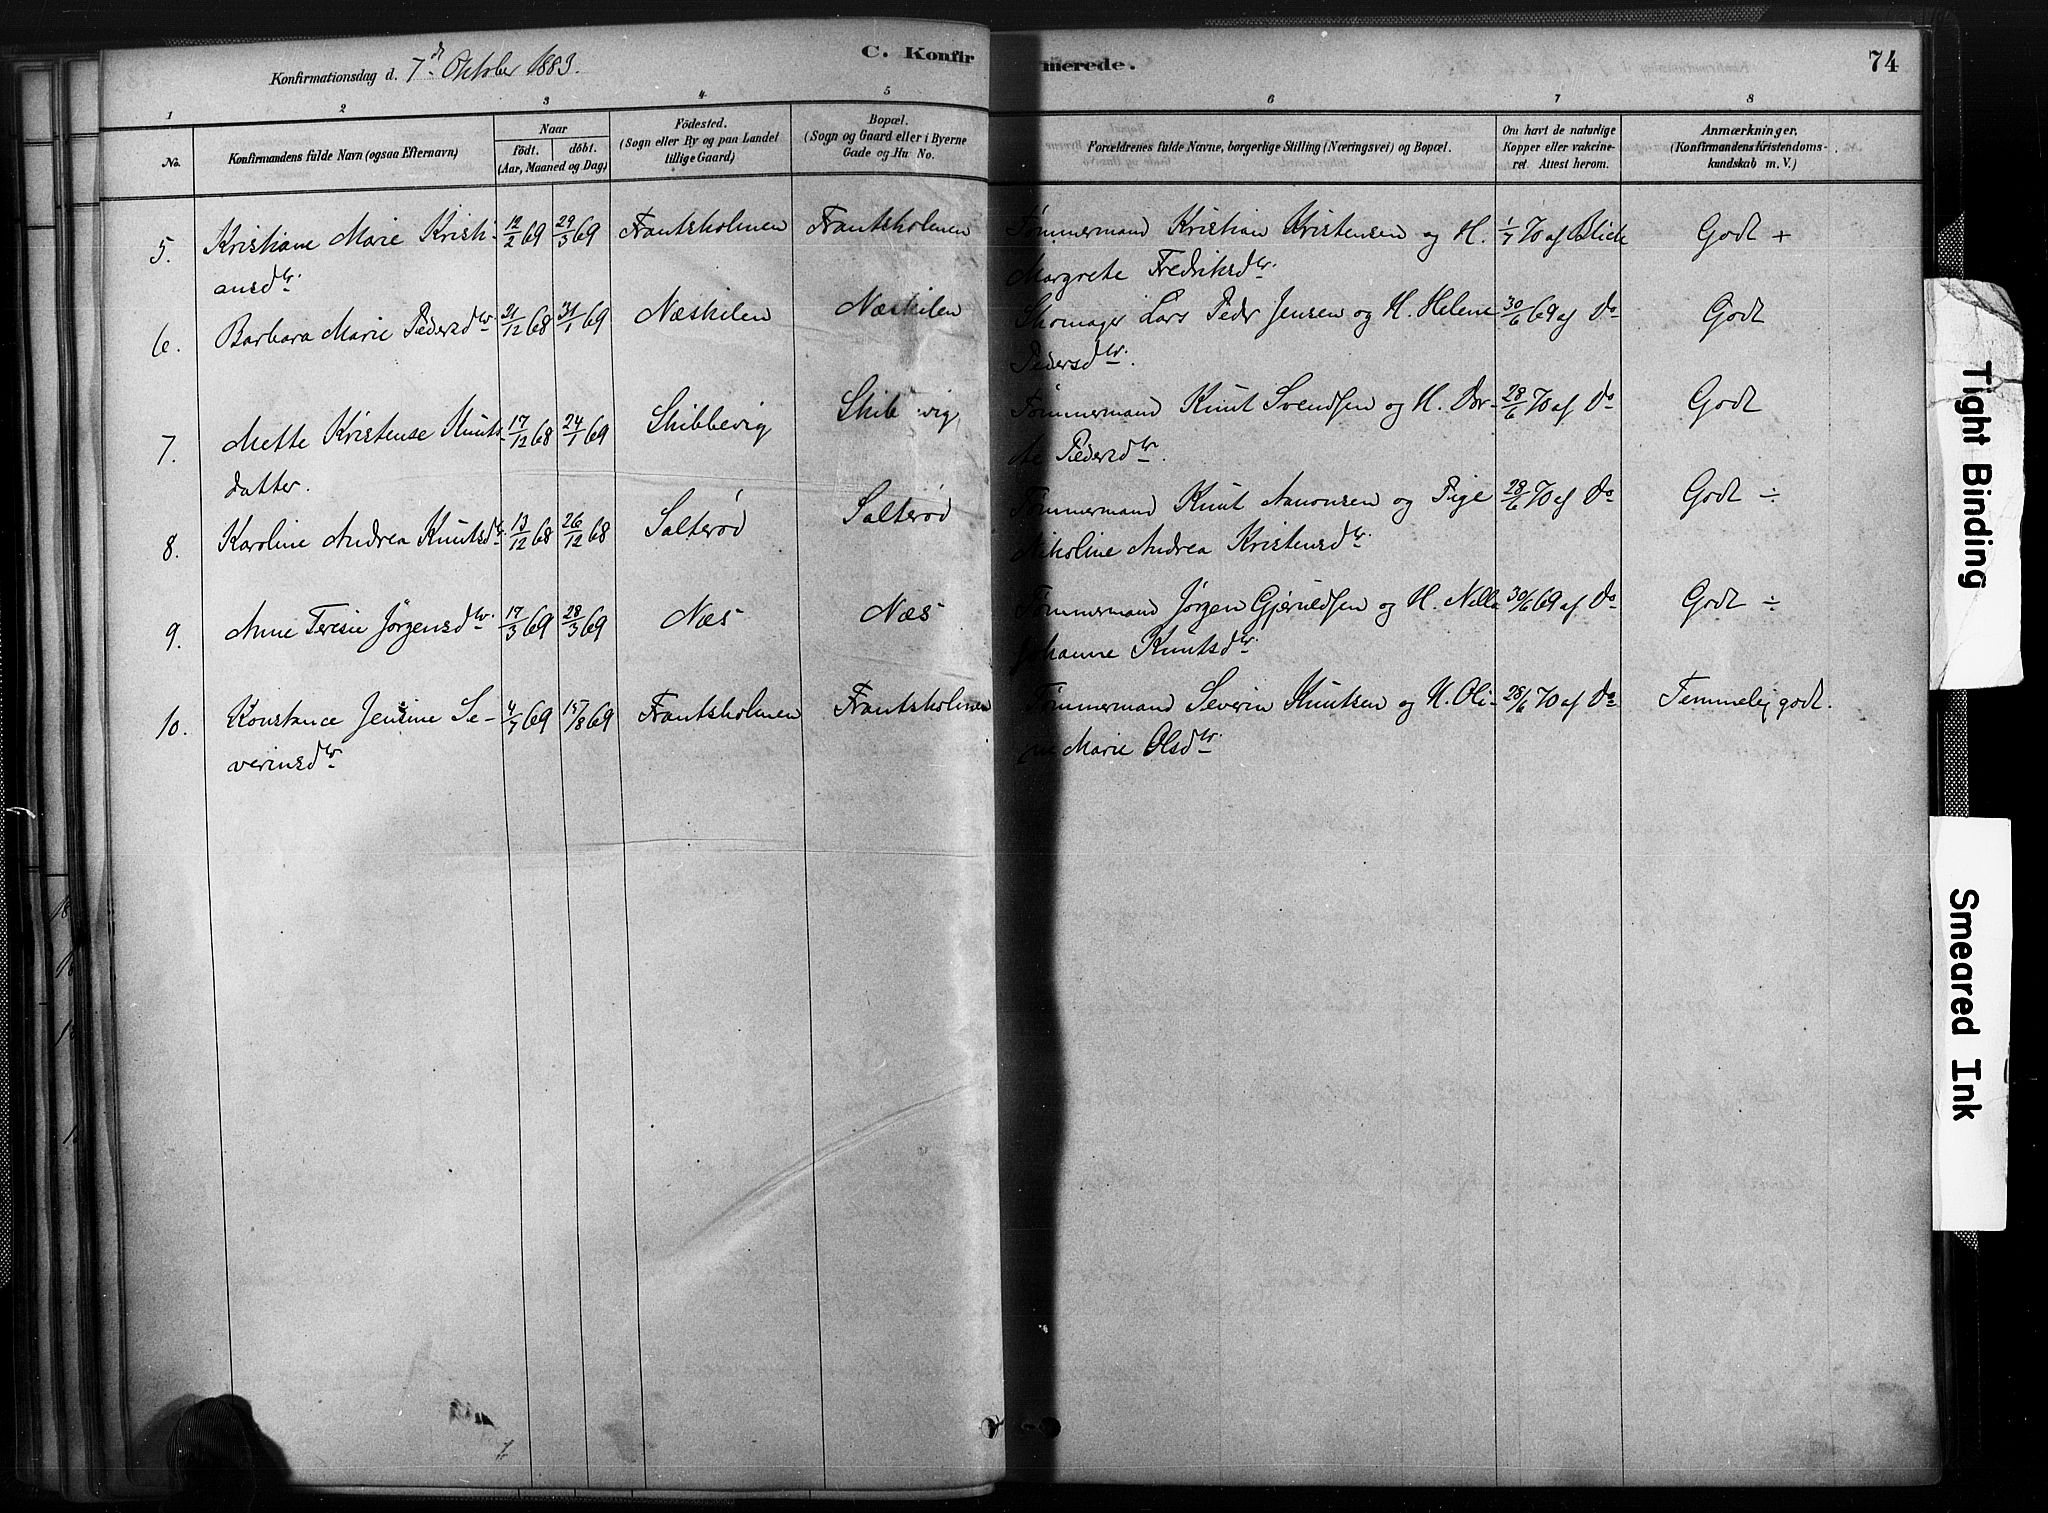 Konfirmationsdag d. 7de Oktober 1883.
C. Konfirmerede.
74
1 2 3 4 5 6 7 8
No.
Konfirmandens fulde Navn (ogsaa Efternavn)
Naar
födt. döbt.
(Aar, Maaned og Dag)
Födested.
(Sogn eller By og paa Landet
tillige Gaard)
Bopæl.
(Sogn og Gaard eller i Byerne
Gade og Hu No.
Forældrenes fulde Navne, borgerlige Stilling (Næringsvei) og Bopæl.
Om havt de naturlige
Kopper eller vakcine-
ret. Attest herom.
Anmærkninger,
(Konfirmandens Kristendoms-
kundskab m. V.)
5. Kristiane Marie Kristi- 12/2 69 29/3 69 Frantsholmen Frantsholmen Tømmermand Kristian Kristensen og H. 1/7 70 af Blich Godt +
ansdtr. Margrete Fredriksdtr.
6. Barbara Marie Pedersdtr 21/12 68 31/1 69 Næskilen Næskilen Skomager Lars Peder Jensen og H. Helene 30/6 69 af Do Godt
Pedersdtr.
7. Mette Kristense Knuts- 17/12 68 24/1 69 Skibbevig Skib vig Tømmermand Knut Svendsen og H. Dor- 28/6 70 af Do Godt
datter. te Pedersdtr.
8. Karoline Andrea Knutsdtr. 13/12 68 26/12 68 Salterød Salterød Tømmermand Knut Aanonsen og Pige 28/6 70 af Do Godt ÷
Nikoline Andrea Kristensdtr.
9. Anne Teresie Jørgensdtr. 17/3 69 28/3 69 Næs Næs Tømmermand Jørgen Gjeruldsen og H. Nilla 30/6 69 af Do Godt ÷
Johanne Knutsdtr.
10. Konstance Jensine Se- 4/7 69 15/8 69 Frantsholmen Frantsholmen Tømmermand Severin Knutsen og H. Oli- 28/6 70 af Do Temmelig godt.
verinsdtr ne Marie Olsdtr.
Tight Binding
Smeared Ink